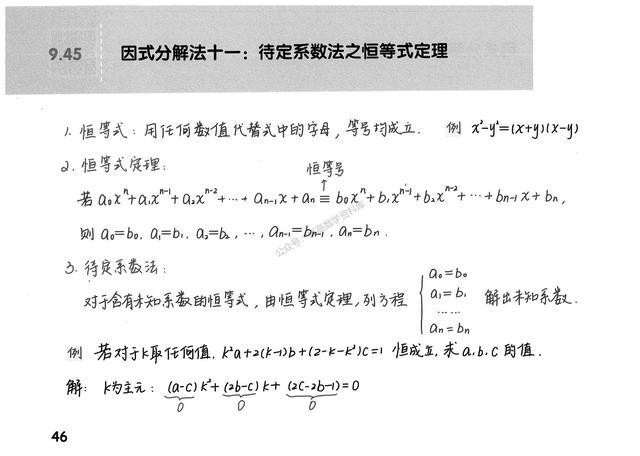 9.45 因式分解法十一：待定系数法之恒等式定理
1. 恒等式：用任何数值代替式中的字母，等号均成立. 例 x²-y²=(x+y)(x-y)
2. 恒等式定理：
恒等号
↑
若 a₀xⁿ+a₁xⁿ⁻¹+a₂xⁿ⁻²+…+aₙ₋₁x+aₙ ≡ b₀xⁿ+b₁xⁿ⁻¹+b₂xⁿ⁻²+…+bₙ₋₁x+bₙ,
则 a₀=b₀, a₁=b₁, a₂=b₂, …, aₙ₋₁=bₙ₋₁, aₙ=bₙ.
3. 待定系数法：
a₀=b₀
对于含有未知系数的恒等式，由恒等式定理，列方程 { a₁=b₁ 解出未知系数.
……
aₙ=bₙ
例 若对于k取任何值, k²a+2(k-1)b+(2-k-k²)c=1 恒成立, 求a,b,c的值.
解: k为主元: (a-c)k²+(2b-c)k+(2c-2b-1)=0
0 0 0
46